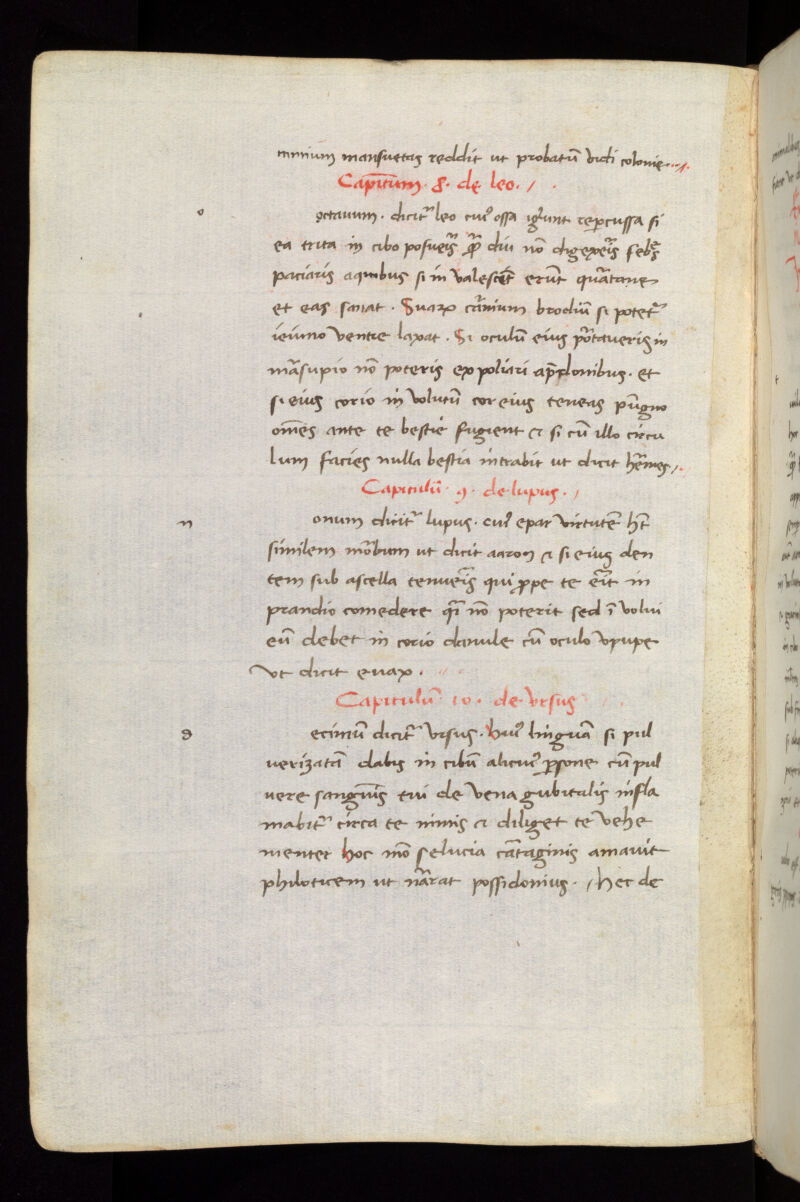 omnium mansuetas reddit ut probatū vidi colonie
Capitulum · 8 · de leo ·
o
octauum · dicitʳ leo cuiꝰ ossa ignūt repcussa si
ea trita in cibo posueris diu nō digexeris febrē
paciaris aq̄ibus si in valescēt erūt quartane
et eas sanat · Suax carnium brodiū si potetʳ
ieiuno ventre laxat · Si oculū eius portaueris in
marsupio nō poteris expoliari a predonibus · et
si eius corio in volutū cor eius teneas pugno
omēs ante te bestie fugient & si cū illo circu
lum facies nulla bestia intrabit ut dicit hermes
Capitulū · 9 · de lupus ·
n
onum dicitʳ lupus · cuiꝰ epar virtutē hꝫt
similem morbum ut dicit aaron & si eius den
tem sub ascella tenueris qui prope te erit in
prandio comedere quasi nō poterit sed ī volui
eū debet in corio damule cū oculo vpupe
vt dicit euax ·
Capitulū · 10 · de vrsus
d
ecimū dicitʳ vrsus · huiꝰ linguā si pul
uerizatā dabis in cibū alicuiꝰ psone cū pul
uere sanguinis tui de vena gubitalis infla
mabitʳ circa te nimis & diliget te vehe
menter hoc mō selucia cartaginis amauit
philoticem ut narrat possidonius · hec de